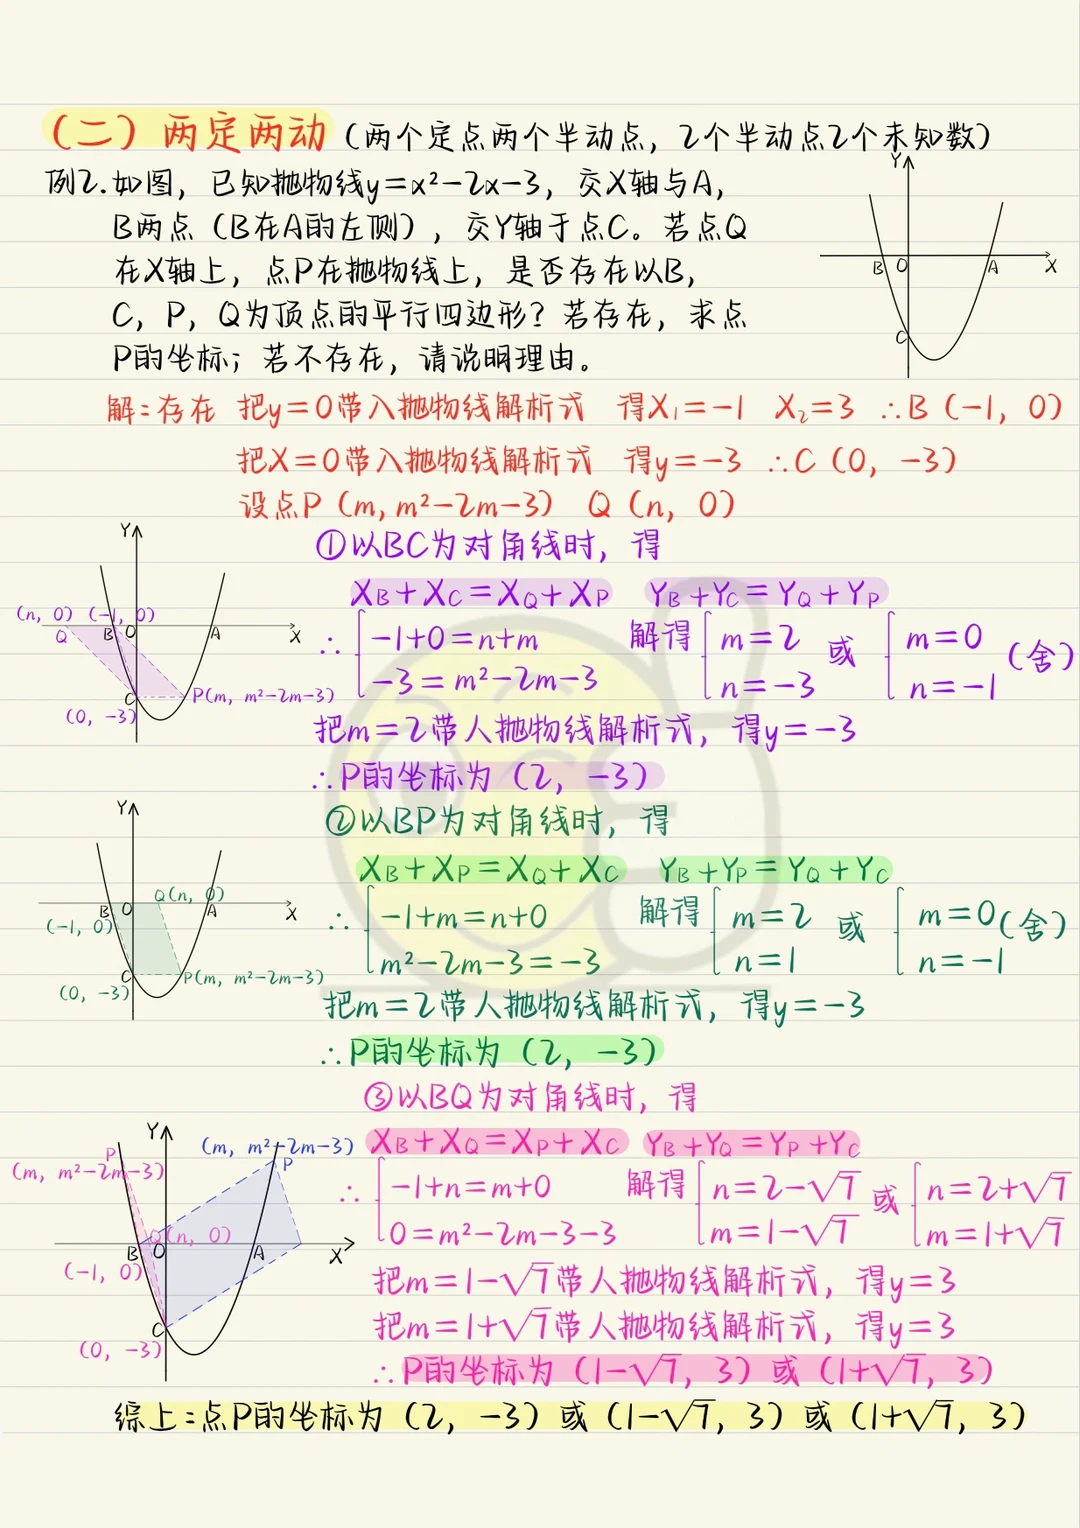 （二）两定两动（两个定点两个半动点，2个半动点2个未知数）
例2.如图，已知抛物线y=x²-2x-3，交X轴与A，
B两点（B在A的左侧），交Y轴于点C。若点Q
在X轴上，点P在抛物线上，是否存在以B，
C，P，Q为顶点的平行四边形？若存在，求点
P的坐标；若不存在，请说明理由。
Y
B O A X
C
解：存在 把y=0带入抛物线解析式 得X₁=-1 X₂=3 ∴B（-1，0）
把X=0带入抛物线解析式 得y=-3 ∴C（0，-3）
设点P（m，m²-2m-3） Q（n，0）
①以BC为对角线时，得
X_B+X_C=X_Q+X_P Y_B+Y_C=Y_Q+Y_P
∴ { -1+0=n+m 解得 { m=2 或 { m=0 （舍）
-3=m²-2m-3 n=-3 n=-1
把m=2带人抛物线解析式，得y=-3
∴P的坐标为（2，-3）
Y
(n，0) (-1，0)
Q B O A X
C P(m，m²-2m-3)
(0，-3)
②以BP为对角线时，得
X_B+X_P=X_Q+X_C Y_B+Y_P=Y_Q+Y_C
∴ { -1+m=n+0 解得 { m=2 或 { m=0 （舍）
m²-2m-3=-3 n=1 n=-1
把m=2带人抛物线解析式，得y=-3
∴P的坐标为（2，-3）
Y
Q(n，0)
B O A X
(-1，0)
C P(m，m²-2m-3)
(0，-3)
③以BQ为对角线时，得
X_B+X_Q=X_P+X_C Y_B+Y_Q=Y_P+Y_C
∴ { -1+n=m+0 解得 { n=2-√7 或 { n=2+√7
0=m²-2m-3-3 m=1-√7 m=1+√7
把m=1-√7带人抛物线解析式，得y=3
把m=1+√7带人抛物线解析式，得y=3
∴P的坐标为（1-√7，3）或（1+√7，3）
Y
P (m，m²-2m-3)
(m，m²-2m-3) P
Q(n，0)
B O A X
(-1，0)
C
(0，-3)
综上：点P的坐标为（2，-3）或（1-√7，3）或（1+√7，3）